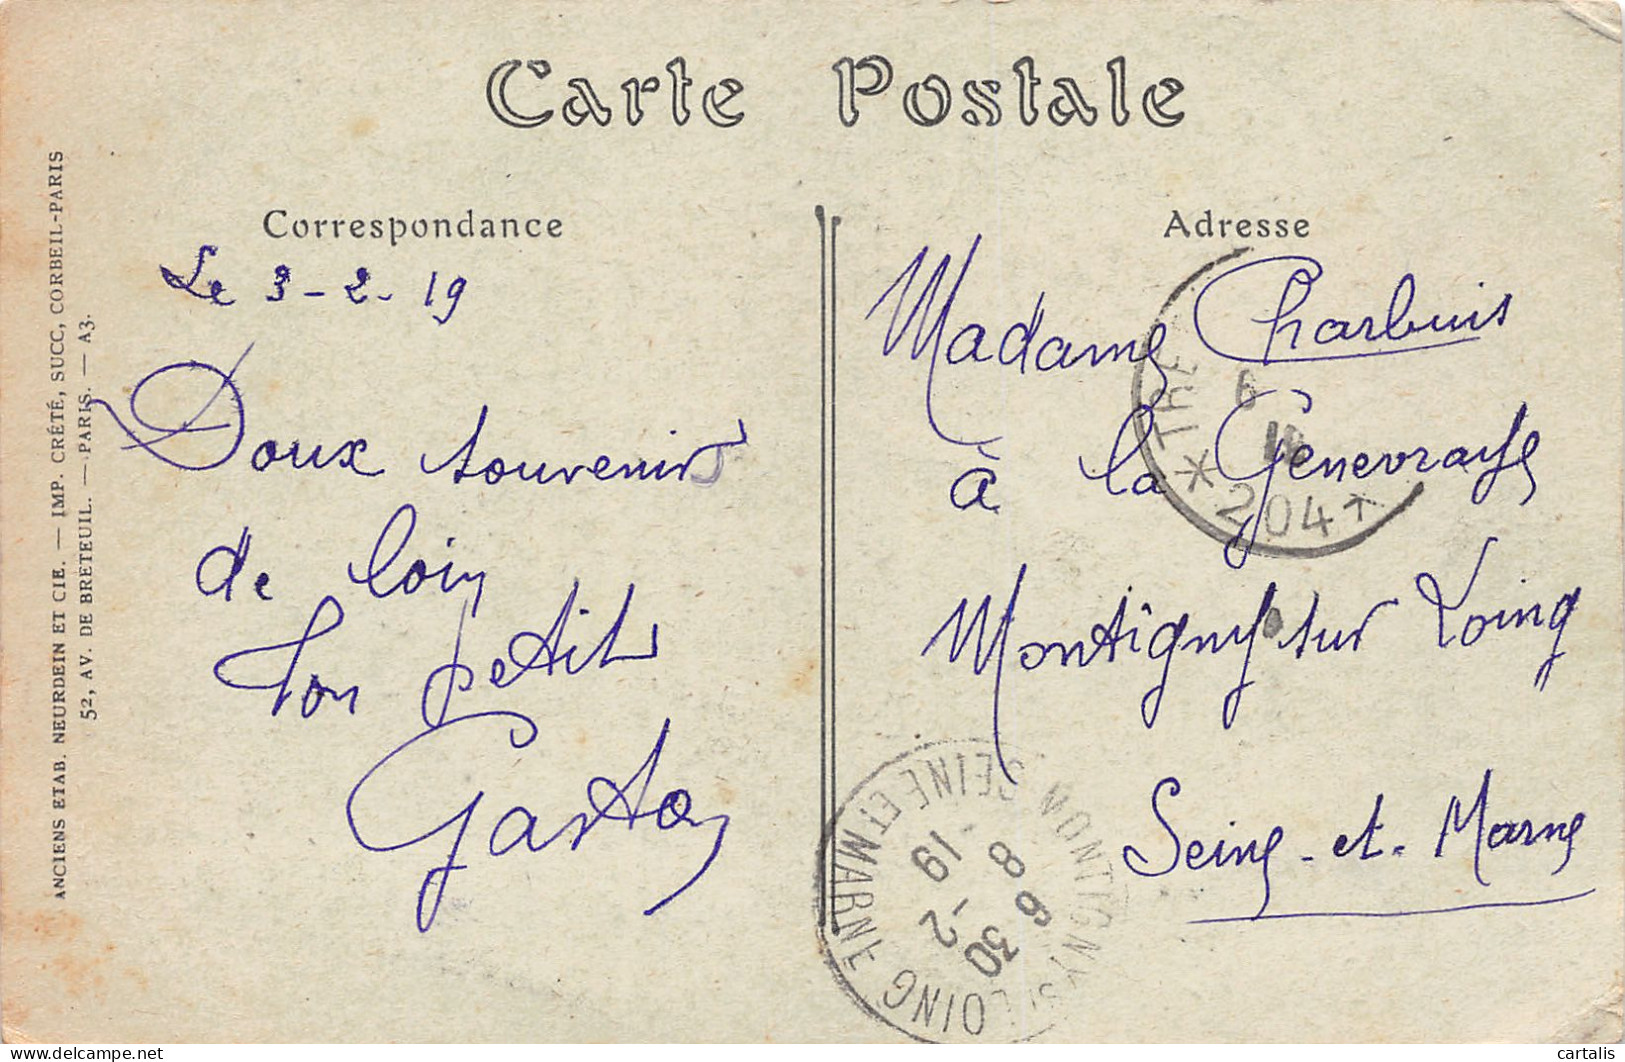 Carte Postale
Correspondance
Adresse
ANCIENS ETAB. NEURDEIN ET CIE. — IMP. CRÉTÉ, SUCC, CORBEIL-PARIS
52, AV. DE BRETEUIL. — PARIS. — A3.
Le 3-2-19
Doux souvenir
de loin
Ton petit
Gaston
Madame Charbuis
à la Genevraye
Montigny sur Loing
Seine-et-Marne
6
* 204 *
MONTIGNY S/ LOING
SEINE ET MARNE
6 30
8 -2
19
cartalis